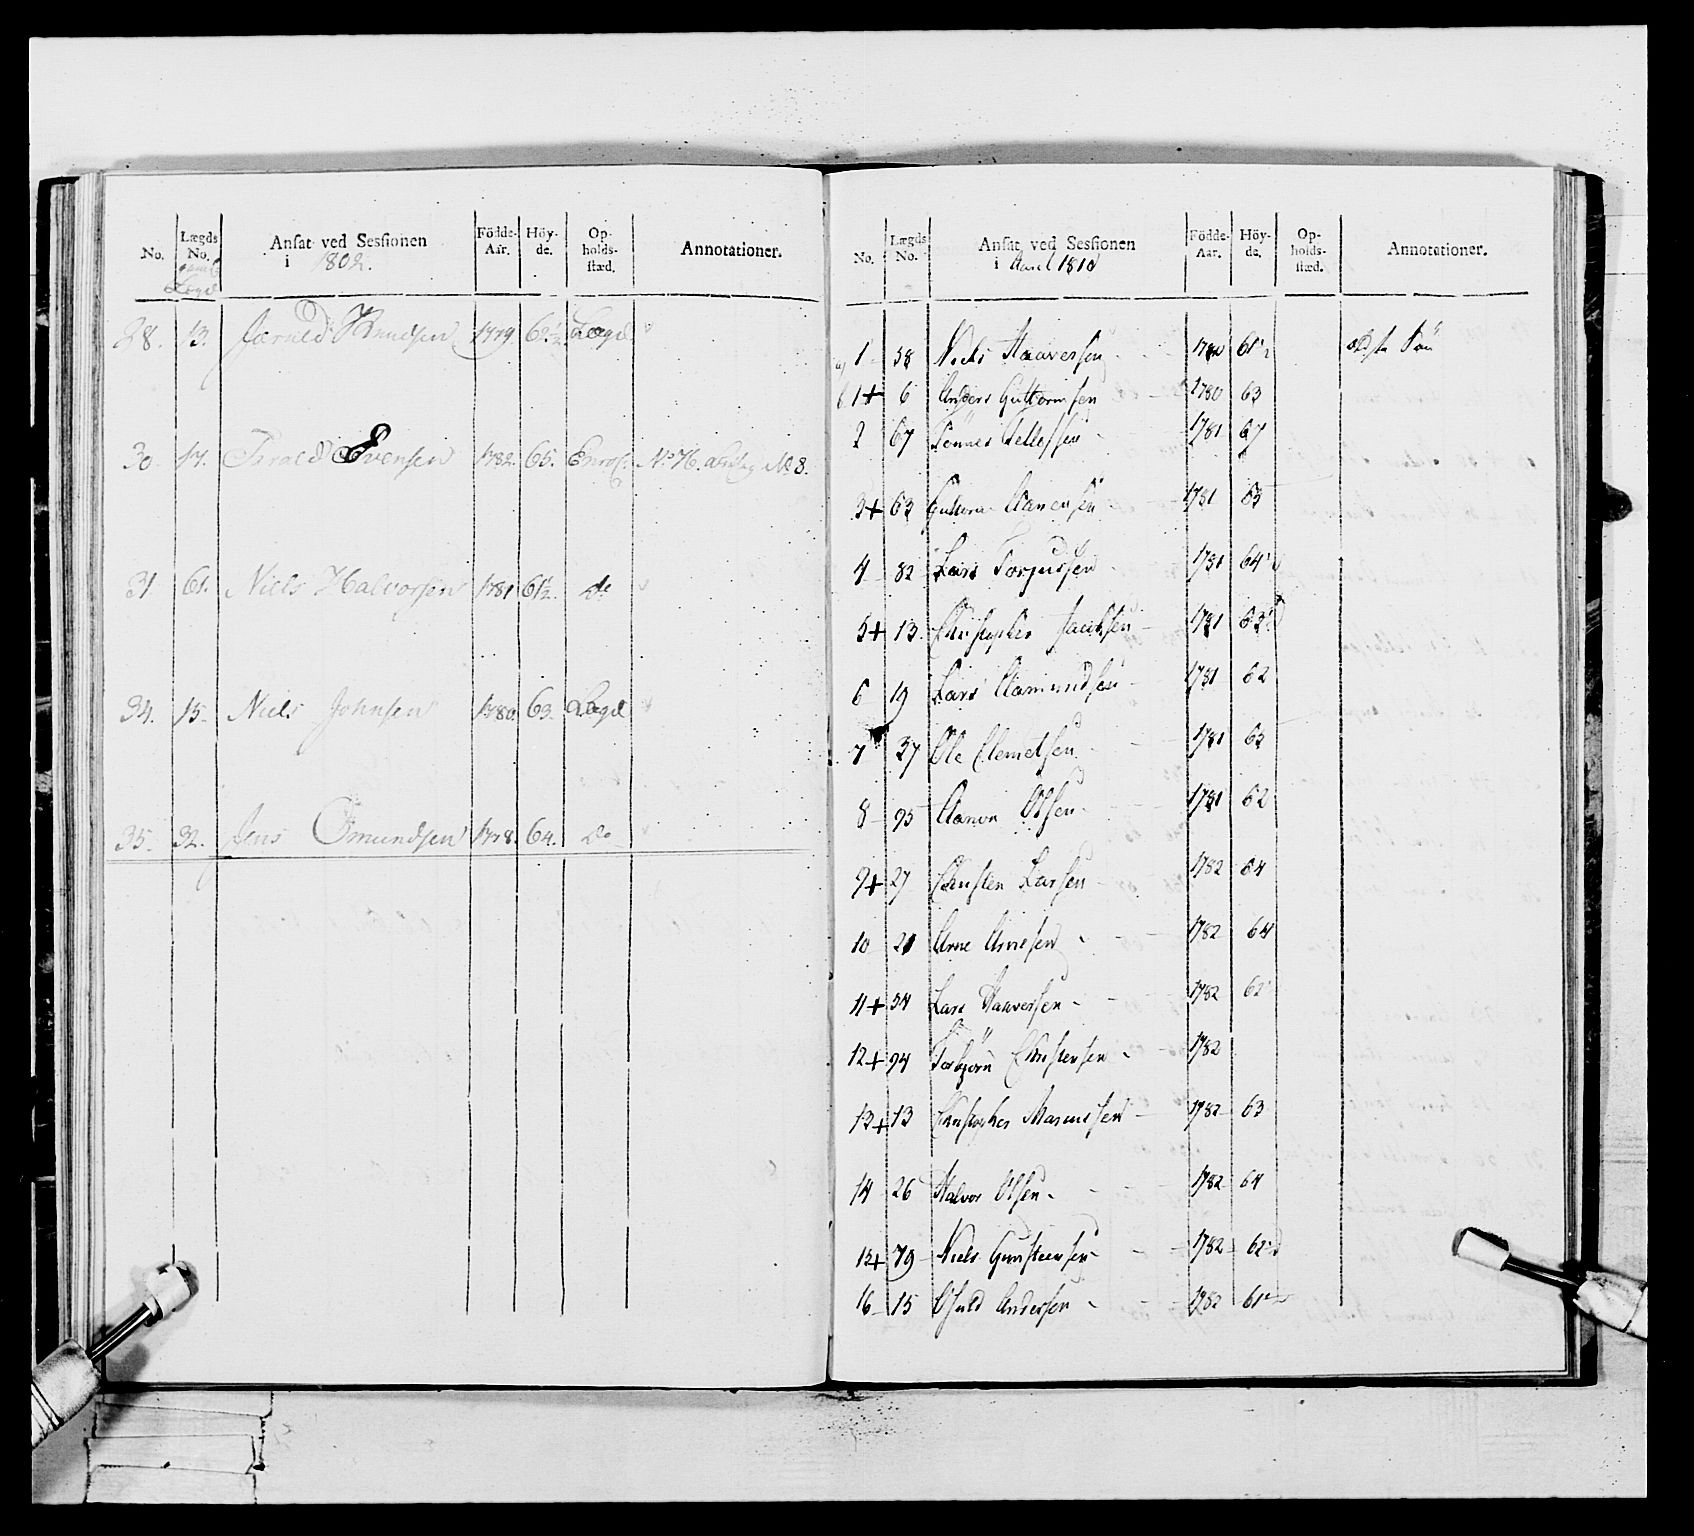 No. Lægds No. Ansat ved Sessionen i 1802. Födde-Aar. Höy-de. Op-holds-stæd. Annotationer.
gamle Lægd
28. 13. Jeruld Knudsen 1779 62½ Lægd
30. 17. Tarald Evensen 1782. 65. Enrol. No. 76. No. 8.
31. 61. Niels Halvorsen 1781 61½ do
34. 15. Niels Johnsen 1780. 63. Lægd
35. 32. Jens Omundsen 1778. 64. do
No. Lægds No. Ansat ved Sessionen i Aaret 1810 Födde-Aar. Höy-de. Op-holds-stæd. Annotationer.
a) 1 58 Niels Haaversen 1780 61½ ældste Sön
b 1+ 6 Anders Guttormsen 1780 63
2 67 Tönnes Tellefsen 1781 67
3+ 63 Guttorm Aanensen 1781 65
4 82 Lars Torjussen 1781 64½
5+ 13. Christopher Jacobsen 1781 63½
6 19 Lars Aamundsen 1781 62
7 37 Ole Clemetsen 1781 63
8 95 Aanon Olsen 1781 62
9+ 27 Christen Larsen 1782 64
10 21 Arne Arnesen 1782 64
11+ 54 Lars Haaversen 1782 62
12+ 94 Torbjörn Christensen 1782
13+ 13 Christopher Marcussen 1782 63
14 26 Halvor Olsen 1782 64
15+ 79 Niels Gunsteensen 1782 62½
16 15 Osuld Andersen 1782 61½